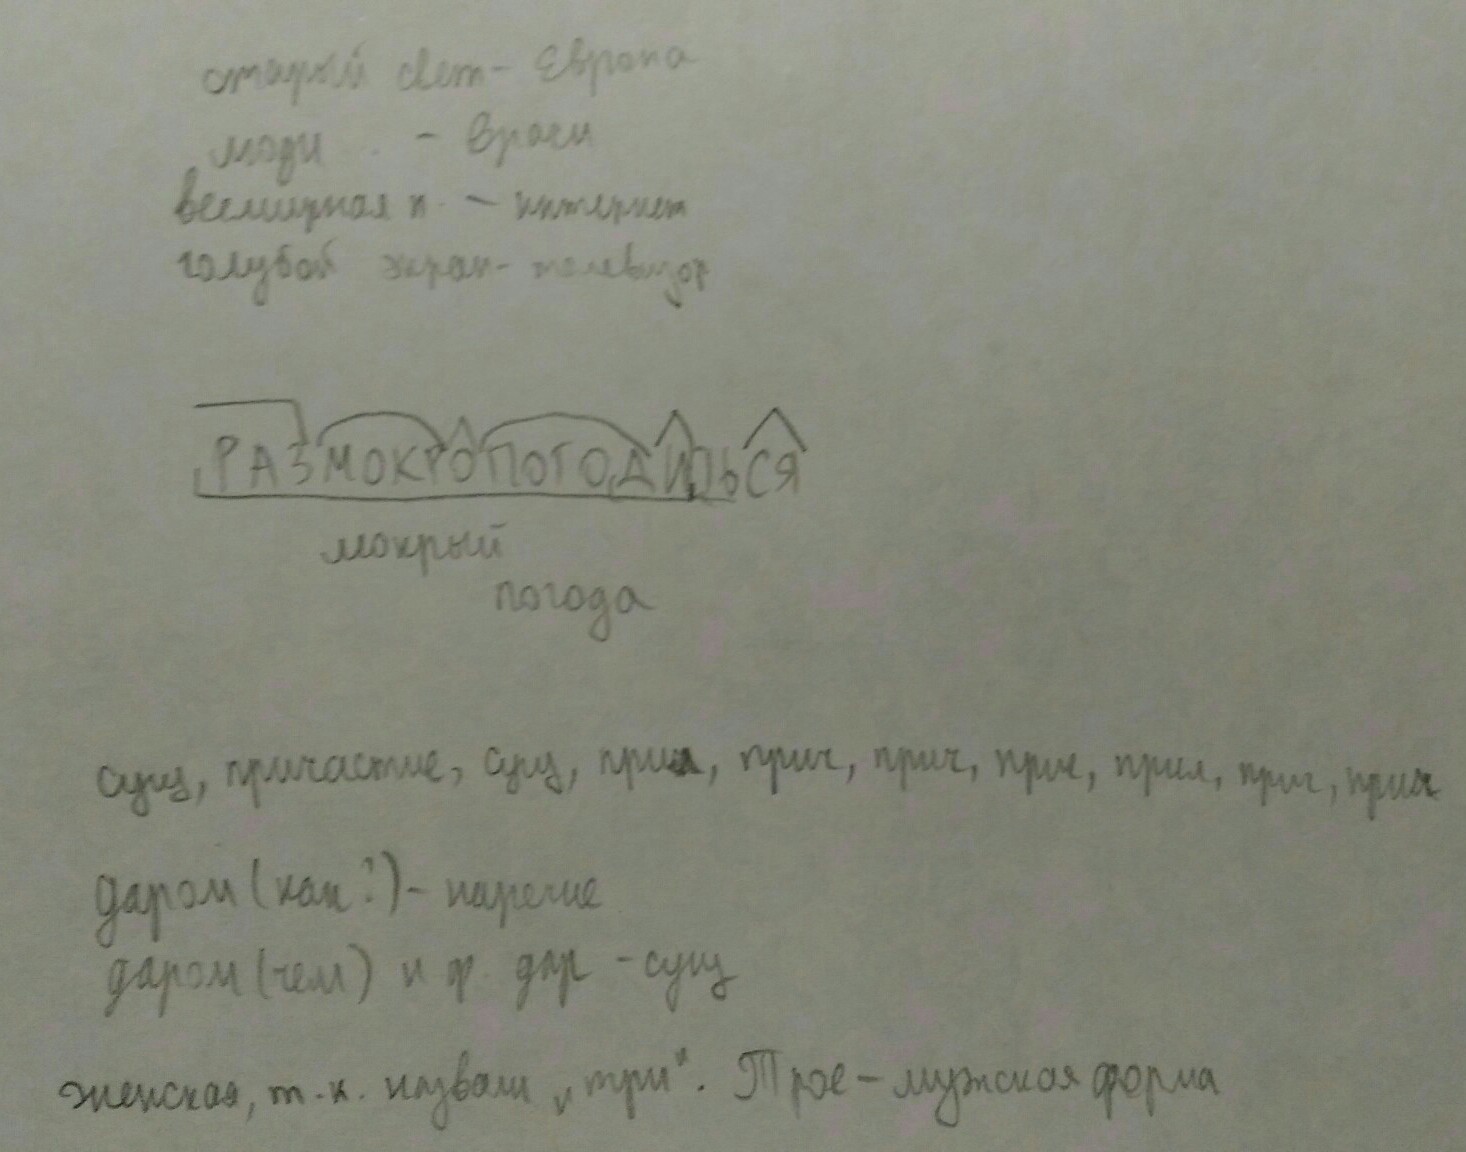 старый свет - Европа
люди - врачи
всемирная п. - интернет
голубой экран - телевизор
РАЗМОКРОПОГОДИЛЬСЯ
мокрый
погода
сущ, причастие, сущ, прил, прич, прич, прич, прил, прич, прил
даром (как?) - наречие
даром (чем) н ф. дар - сущ
женская, т.к. назвали „три". Трое - мужская форма